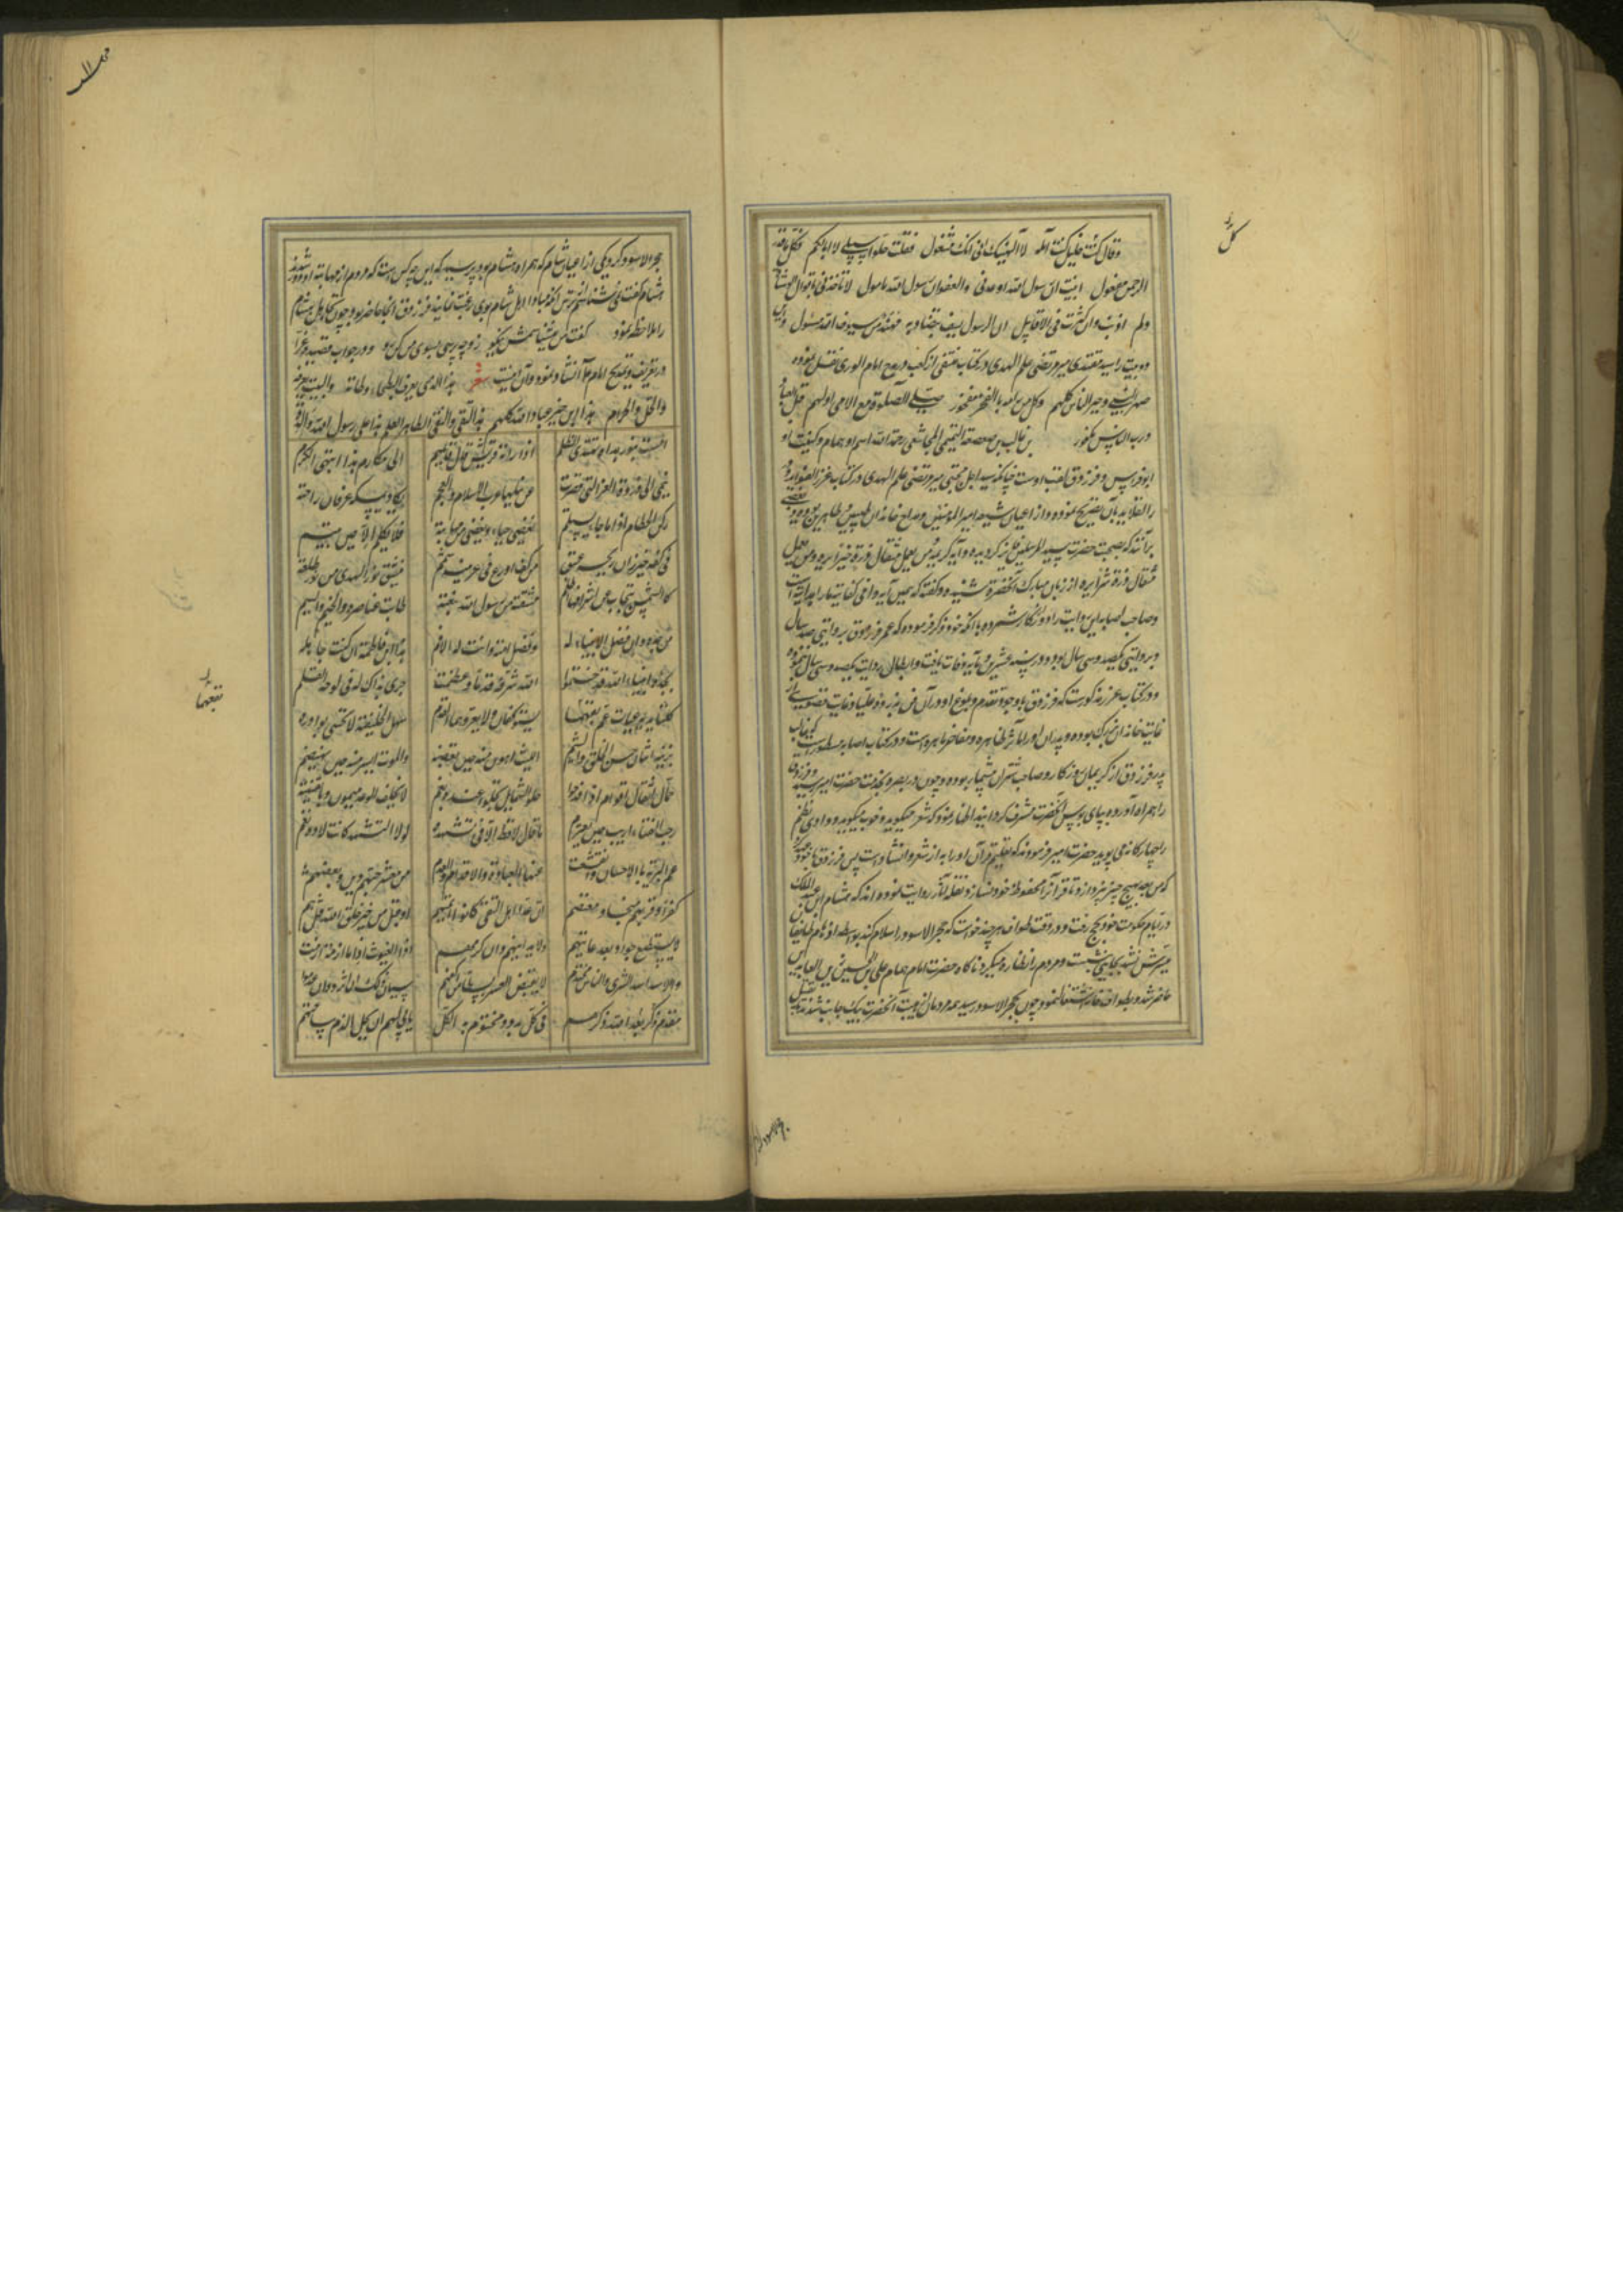 وقال کل خلیل کنت آمله لا الهینک انی عنک مشغول فقلت خلوا سبیلی لا ابا لکم فکل ما قدر
الرحمن مفعول انبئت ان رسول الله اوعدنی والعفو عند رسول الله مامول لا تاخذنی باقوال الوشاة
ولم اذنب وان کثرت فی الاقاویل ان الرسول لسیف یستضاء به مهند من سیوف الله مسلول
دو بیت را سید مقتدی میر مرتضی علم الهدی در کتاب منتقی از کعب در مدح امام الوری نقل نموده
صهر النبی وخیر الناس کلهم وکل من رامه بالفخر مفخور صلی الصلوة مع الامی اولهم قبل العباد
ورب الناس مکفور بن غالب بن صعصعة التمیمی المجاشعی رحمة الله اسم او همام وکنیت او
ابو فراس و فرزدق لقب اوست چنانکه سید اجل مجتبی میر مرتضی علم الهدی در کتاب غرر الفواید و درر
القلاید بآن تصریح نموده و از اعیان شیعه امیر المؤمنین و مداح خاندان طیبین و طاهرین بوده
برآنند که بصحبت حضرت سید المرسلین فایز گردیده و آیه کریمه فمن یعمل مثقال ذرة خیرا یره ومن یعمل
مثقال ذرة شرا یره از زبان مبارک آنحضرت شنیده و گفته که همین آیه وافی کفایت ما را
وصاحب اصابه این روایت را دور از کار شمرده با آنکه خود ذکر فرموده که عمر فرزدق بروایتی صد سال
و بروایتی یکصد و سی سال بود و در سنه عشر و مایه وفات یافت و ابطال روایت یکصد و سی سال ننموده
و در کتاب غرر مذکورست که فرزدق با وجود تقدم و بلوغ او در آن فن بذروه علیا و غایت قصوی
خاندان بزرگ بوده و پدران او را مآثر ظاهره و مفاخر باهره است و در کتاب اصابه مسطورست که غالب
پدر فرزدق از کریمان روزگار و صاحب شتران بیشمار بوده و چون در بصره بخدمت حضرت امیر رسید و فرزدق
را همراه آورده بپای بوس آنحضرت مشرف گردانید اظهار نمود که شعر میگوید و خوب میگوید و وادی نظم
را چابکانه می پوید حضرت امیر فرمودند که تعلیم قرآن او را به از شعر و انشاد است پس فرزدق با خود عهد کرد
که من بعد بهیچ چیز نپردازد تا قرآن محفوظ خود نسازد و نقله آثار روایت نموده اند که هشام ابن عبد الملک
در ایام حکومت خود بحج رفت و در وقت طواف هر چند خواست که حجر الاسود را سلام کند بواسطه ازدحام طایفان
میسرش نشد بجایی بنشست و مردم را نظاره میکرد ناگاه حضرت امام همام علی بن الحسین زین العابدین
حاضر شد و بطواف خانه اشتغال نمود چون بحجر الاسود رسید همه مردمان از هیبت آنحضرت بیک جانب شدند تا
کل
حجر الاسود کرد یکی از اعیان شام که همراه هشام بود پرسید که این چه کس است که مردم از مهابت او دور شدند
هشام گفت نمی شناسم ترس آنکه مبادا اهل شام بوی رغبت نمایند فرزدق آنجا حاضر بود چون تجاهل هشام
را ملاحظه نمود گفت من میشناسمش نیکو زو چه پرسی بسوی من کن رو و در جواب قصیده غرا
در تعریف و تمدیح امام انشا نمود و آن اینست شعر هذا الذی یعرف البطحاء وطاته والبیت یعرفه
والحل والحرم هذا ابن خیر عباد الله کلهم هذا التقی والنقی الطاهر العلم هذا علی رسول الله والده
امست بنور هداه تهتدی الظلم اذا راته قریش قال قایلهم الی مکارم هذا ینتهی الکرم
ینمی الی ذروة العز التی قصرت عن نیلها عرب الاسلام والعجم یکاد یمسکه عرفان راحته
رکن الحطیم اذا ما جاء یستلم یغضی حیاء ویغضی من مهابته فلا یکلم الا حین یبتسم
فی کفه خیزران ریحه عبق من کف اروع فی عرنینه شمم ینشق نور الهدی من نور طلعته
کالشمس ینجاب عن اشراقها الظلم مشتقة من رسول الله نبعته طابت عناصره والخیم والشیم
من جده دان فضل الانبیاء له وفضل امته دانت له الامم هذا ابن فاطمة ان کنت جاهله
بجده انبیاء الله قد ختموا الله شرفه قدما وعظمه جری بذاک له فی لوحه القلم
کلتا یدیه غیاث عم نفعهما یستوکفان ولا یعروهما العدم سهل الخلیقة لا تخشی بوادره
یزینه اثنان حسن الخلق والشیم اللیث اهون منه حین تغضبه والموت ایسر منه حین یهتضم
حمال اثقال اقوام اذا فدحوا حلو الشمایل تحلو عنده نعم لا یخلف الوعد میمون نقیبته
رحب الفناء اریب حین یعتزم ما قال لا قط الا فی تشهده لولا التشهد کانت لاؤه نعم
عم البریة بالاحسان فانقشعت عنها الغیابة والاملاق والعدم من معشر حبهم دین وبغضهم
کفر وقربهم منجا ومعتصم ان عد اهل التقی کانوا ائمتهم او قیل من خیر خلق الله قیل هم
لا یستطیع جواد بعد غایتهم ولا یدانیهم قوم وان کرموا هم الغیوث اذا ما ازمة ازمت
والاسد اسد الشری والباس محتدم لا ینقص العسر بسطا من اکفهم سیان ذلک ان اثروا وان عدموا
مقدم بعد ذکر الله ذکرهم فی کل بدو ومختوم به الکلم یابی لهم ان یحل الذم ساحتهم
نفعهما